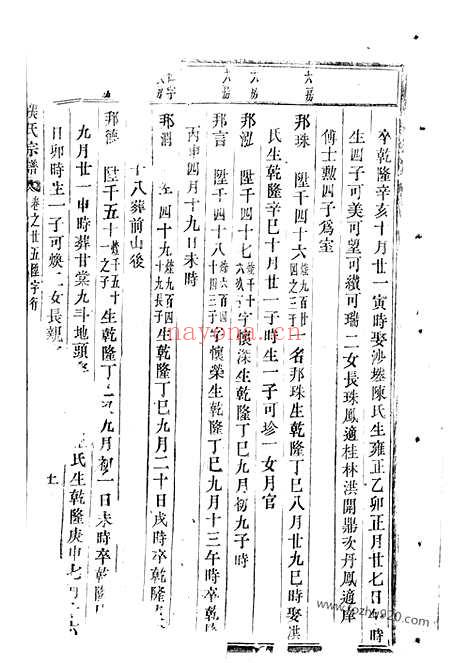 卒乾隆辛亥十月廿一寅時娶沙塍陳氏生雍正乙卯正月廿七日時
生四子可美可望可纘可瑞二女長珠鳳適桂林洪開鼎次丹鳳適岸
傅士勲四子爲室
六房
邦珠 陞千四十六燧九百四四之三子名邦珠生乾隆丁巳八月廿九巳時娶洪
氏生乾隆辛巳十月廿一子時生一子可珍一女月官
邦泓 陞千四十七字懷深生乾隆丁巳九月初九子時
邦言 陞千四十八四三子字懷榮生乾隆丁巳九月十三午時卒乾隆
丙申四月十九日未時
邦渭 四十九燧九百四十九長子生乾隆丁巳九月二十日戌時卒乾隆
十八葬前山後
邦德 陞千五十燧千五十一之子生乾隆丁巳九月初一日未時卒乾隆
九月廿一申時葬甘棠九斗地頭 氏生乾隆庚申七月
日卯時生一子可煥二女長親
張氏宗譜 卷之廿五陞字行
nayona.cn
www.lozhupu920.com